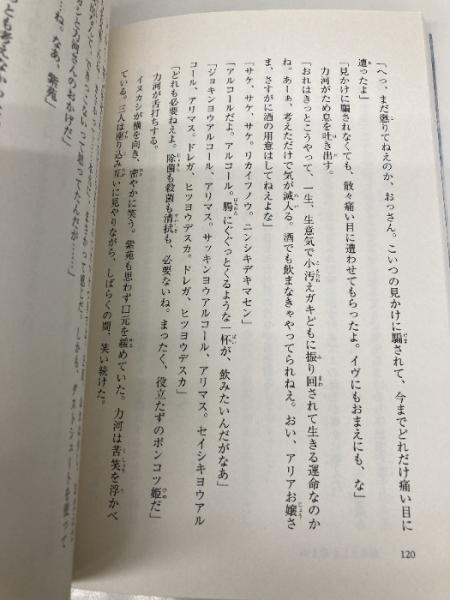 「へっ、まだ懲りてねえのか、おっさん。こいつの見かけに騙されて、今までどれだけ痛い目に
遭ったよ」
「見かけに騙されなくても、散々痛い目に遭わせてもらったよ。イヴにもおまえにも、な」
力河がため息を吐き出す。
「おれはきっとこうやって、一生、生意気で小汚えガキどもに振り回されて生きる運命なのか
ね。あーぁ、考えただけで気が滅入る。酒でも飲まなきゃやってられねえ。おい、アリアお嬢さ
ま、さすがに酒の用意はしてねえよな」
「サケ、サケ、サケ。リカイフノウ。ニンシキデキマセン」
「アルコールだよ。アルコール。腸にぐぐっとくるような一杯が、飲みたいんだがなあ」
「ジョキンヨウアルコール、アリマス。サッキンヨウアルコール、アリマス。セイシキヨウアル
コール、アリマス。ドレガ、ヒツヨウデスカ。ドレガ、ヒツヨウデスカ」
「どれも必要ねえよ。除菌も殺菌も清拭も、必要ないね。まったく、役立たずのポンコツ姫だ」
力河が舌打ちする。
イヌカシが横を向き、密やかに笑う。紫苑も思わず口元を緩めていた。力河は苦笑を浮かべ
ている。三人は座り込み互いに見やりながら、しばらくの間、笑い続けた。
120
シと力河さんのおかげだ」
…ね。なあ、紫苑」